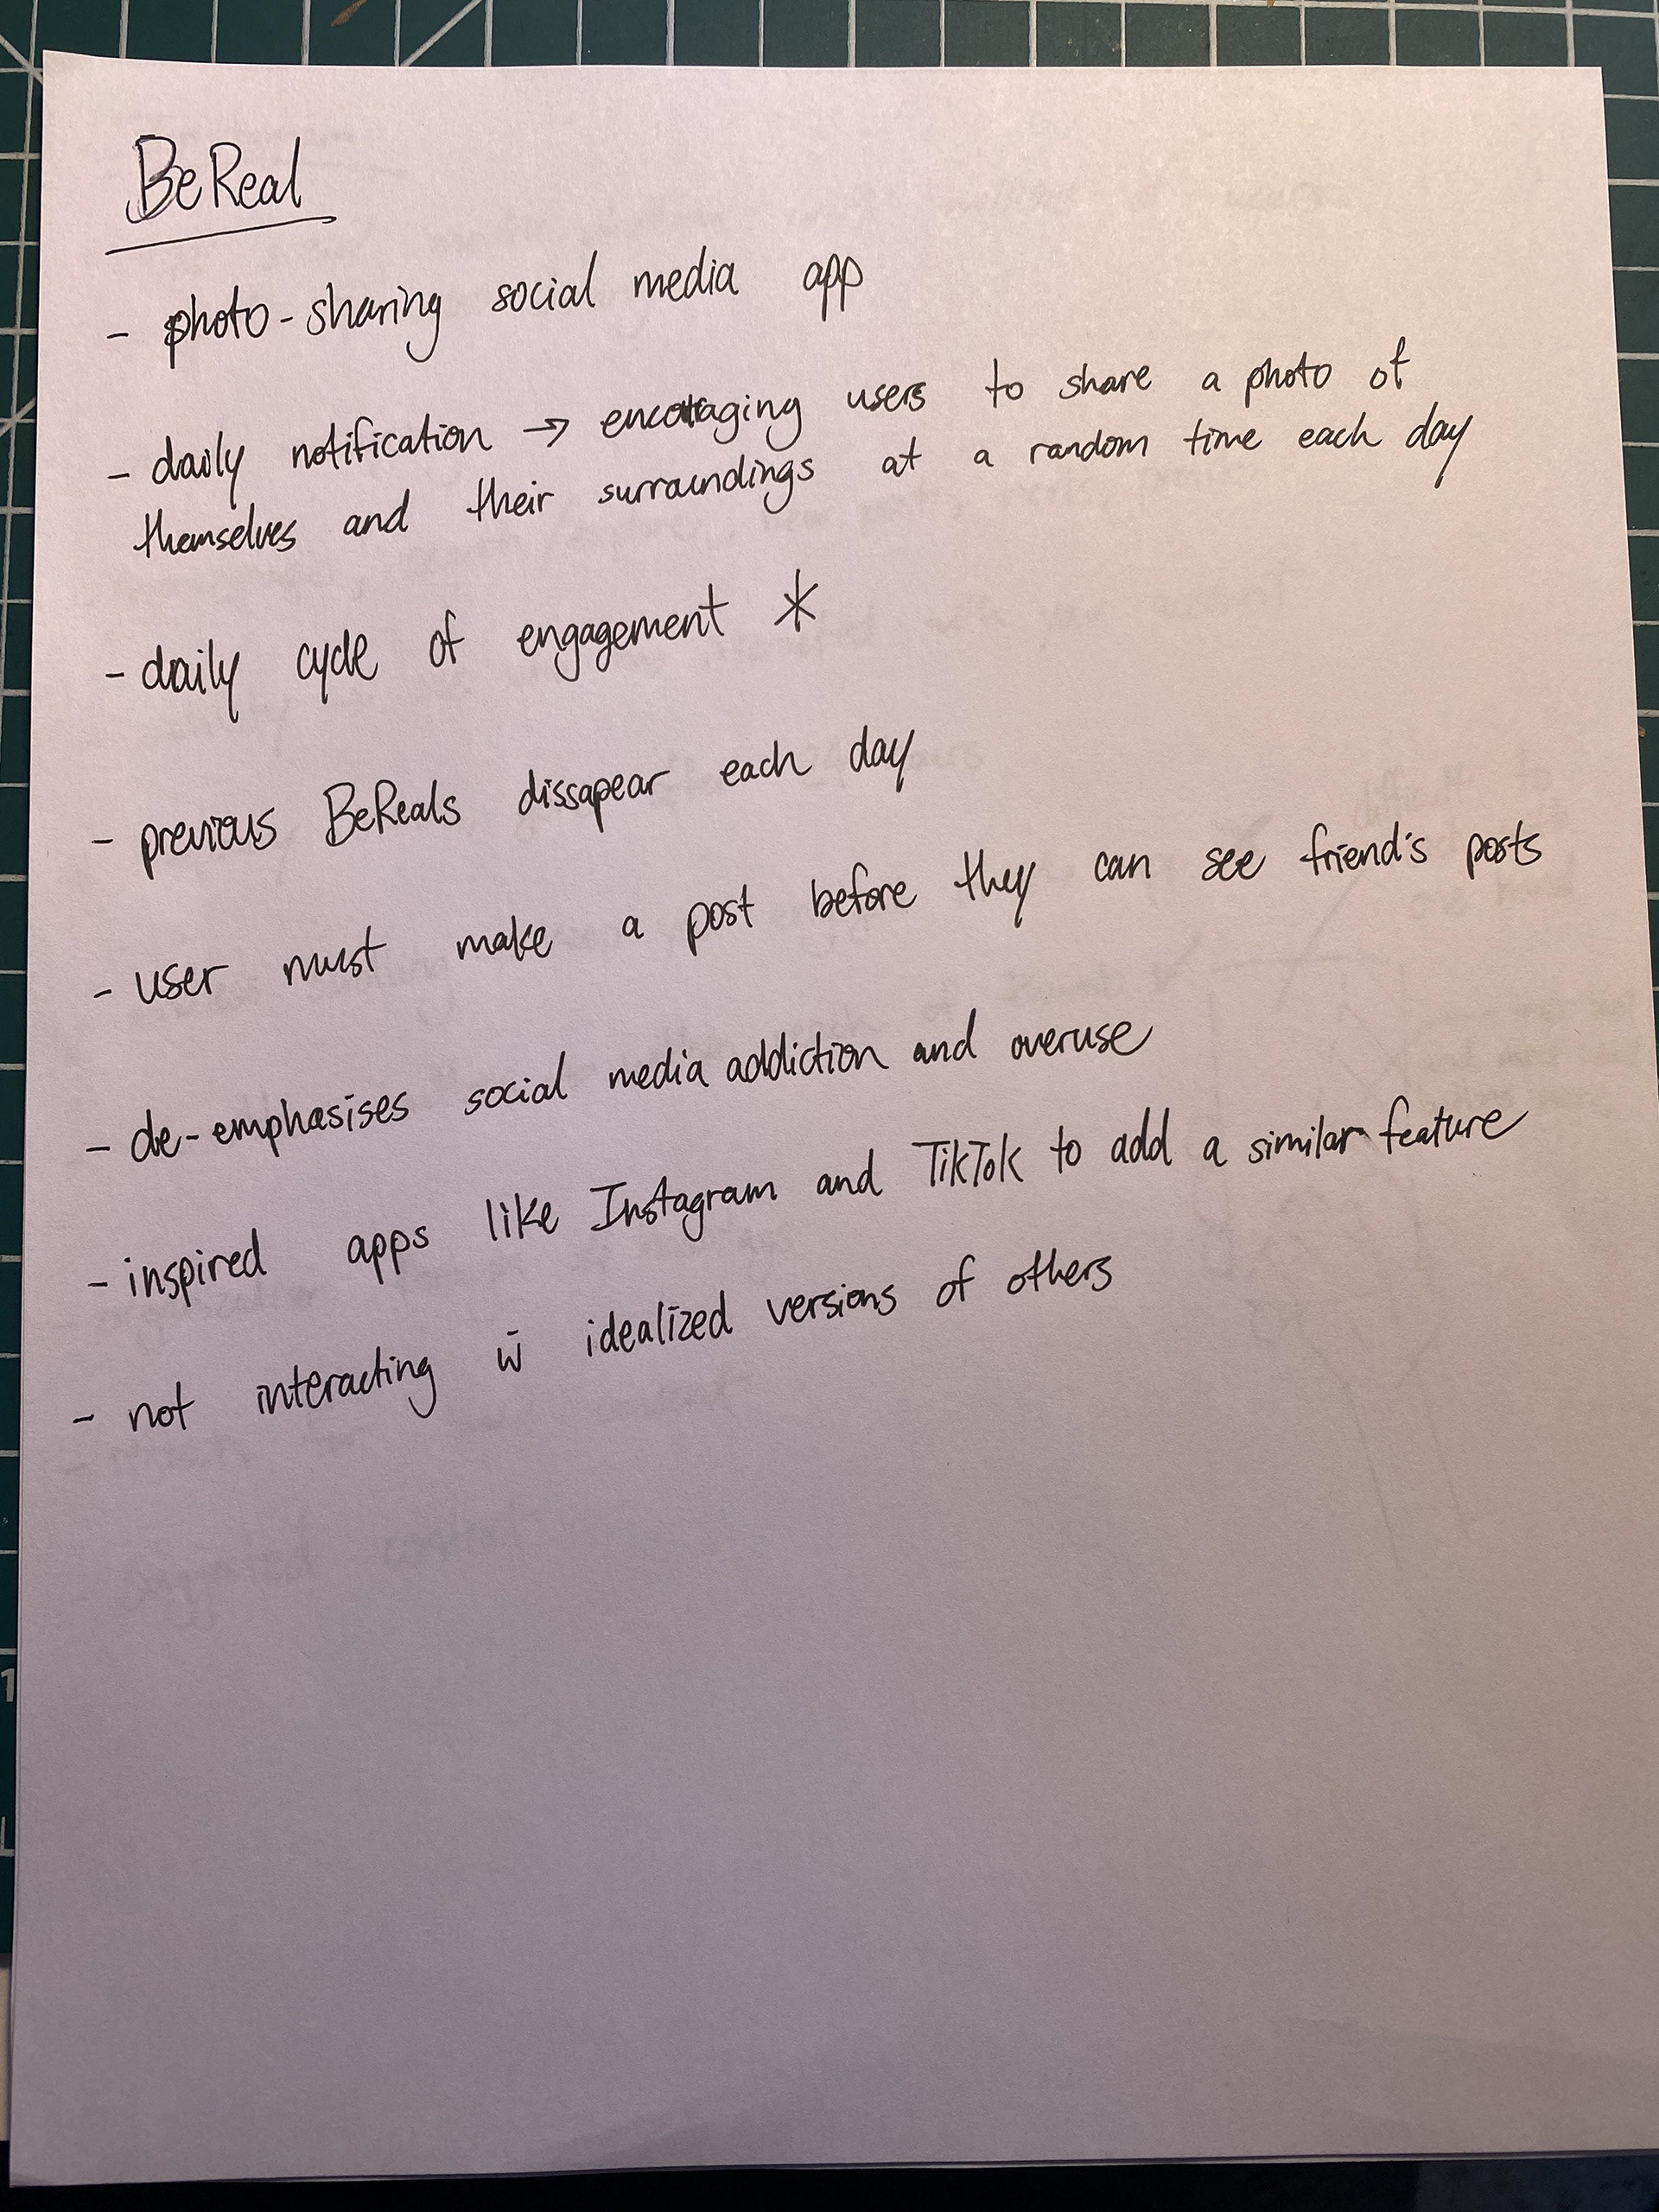 BeReal
- photo-sharing social media app
- daily notification → encouraging users to share a photo of
themselves and their surroundings at a random time each day
- daily cycle of engagement *
- previous BeReals dissapear each day
- user must make a post before they can see friend's posts
- de-emphasises social media addiction and overuse
- inspired apps like Instagram and TikTok to add a similar feature
- not interacting w̄ idealized versions of others